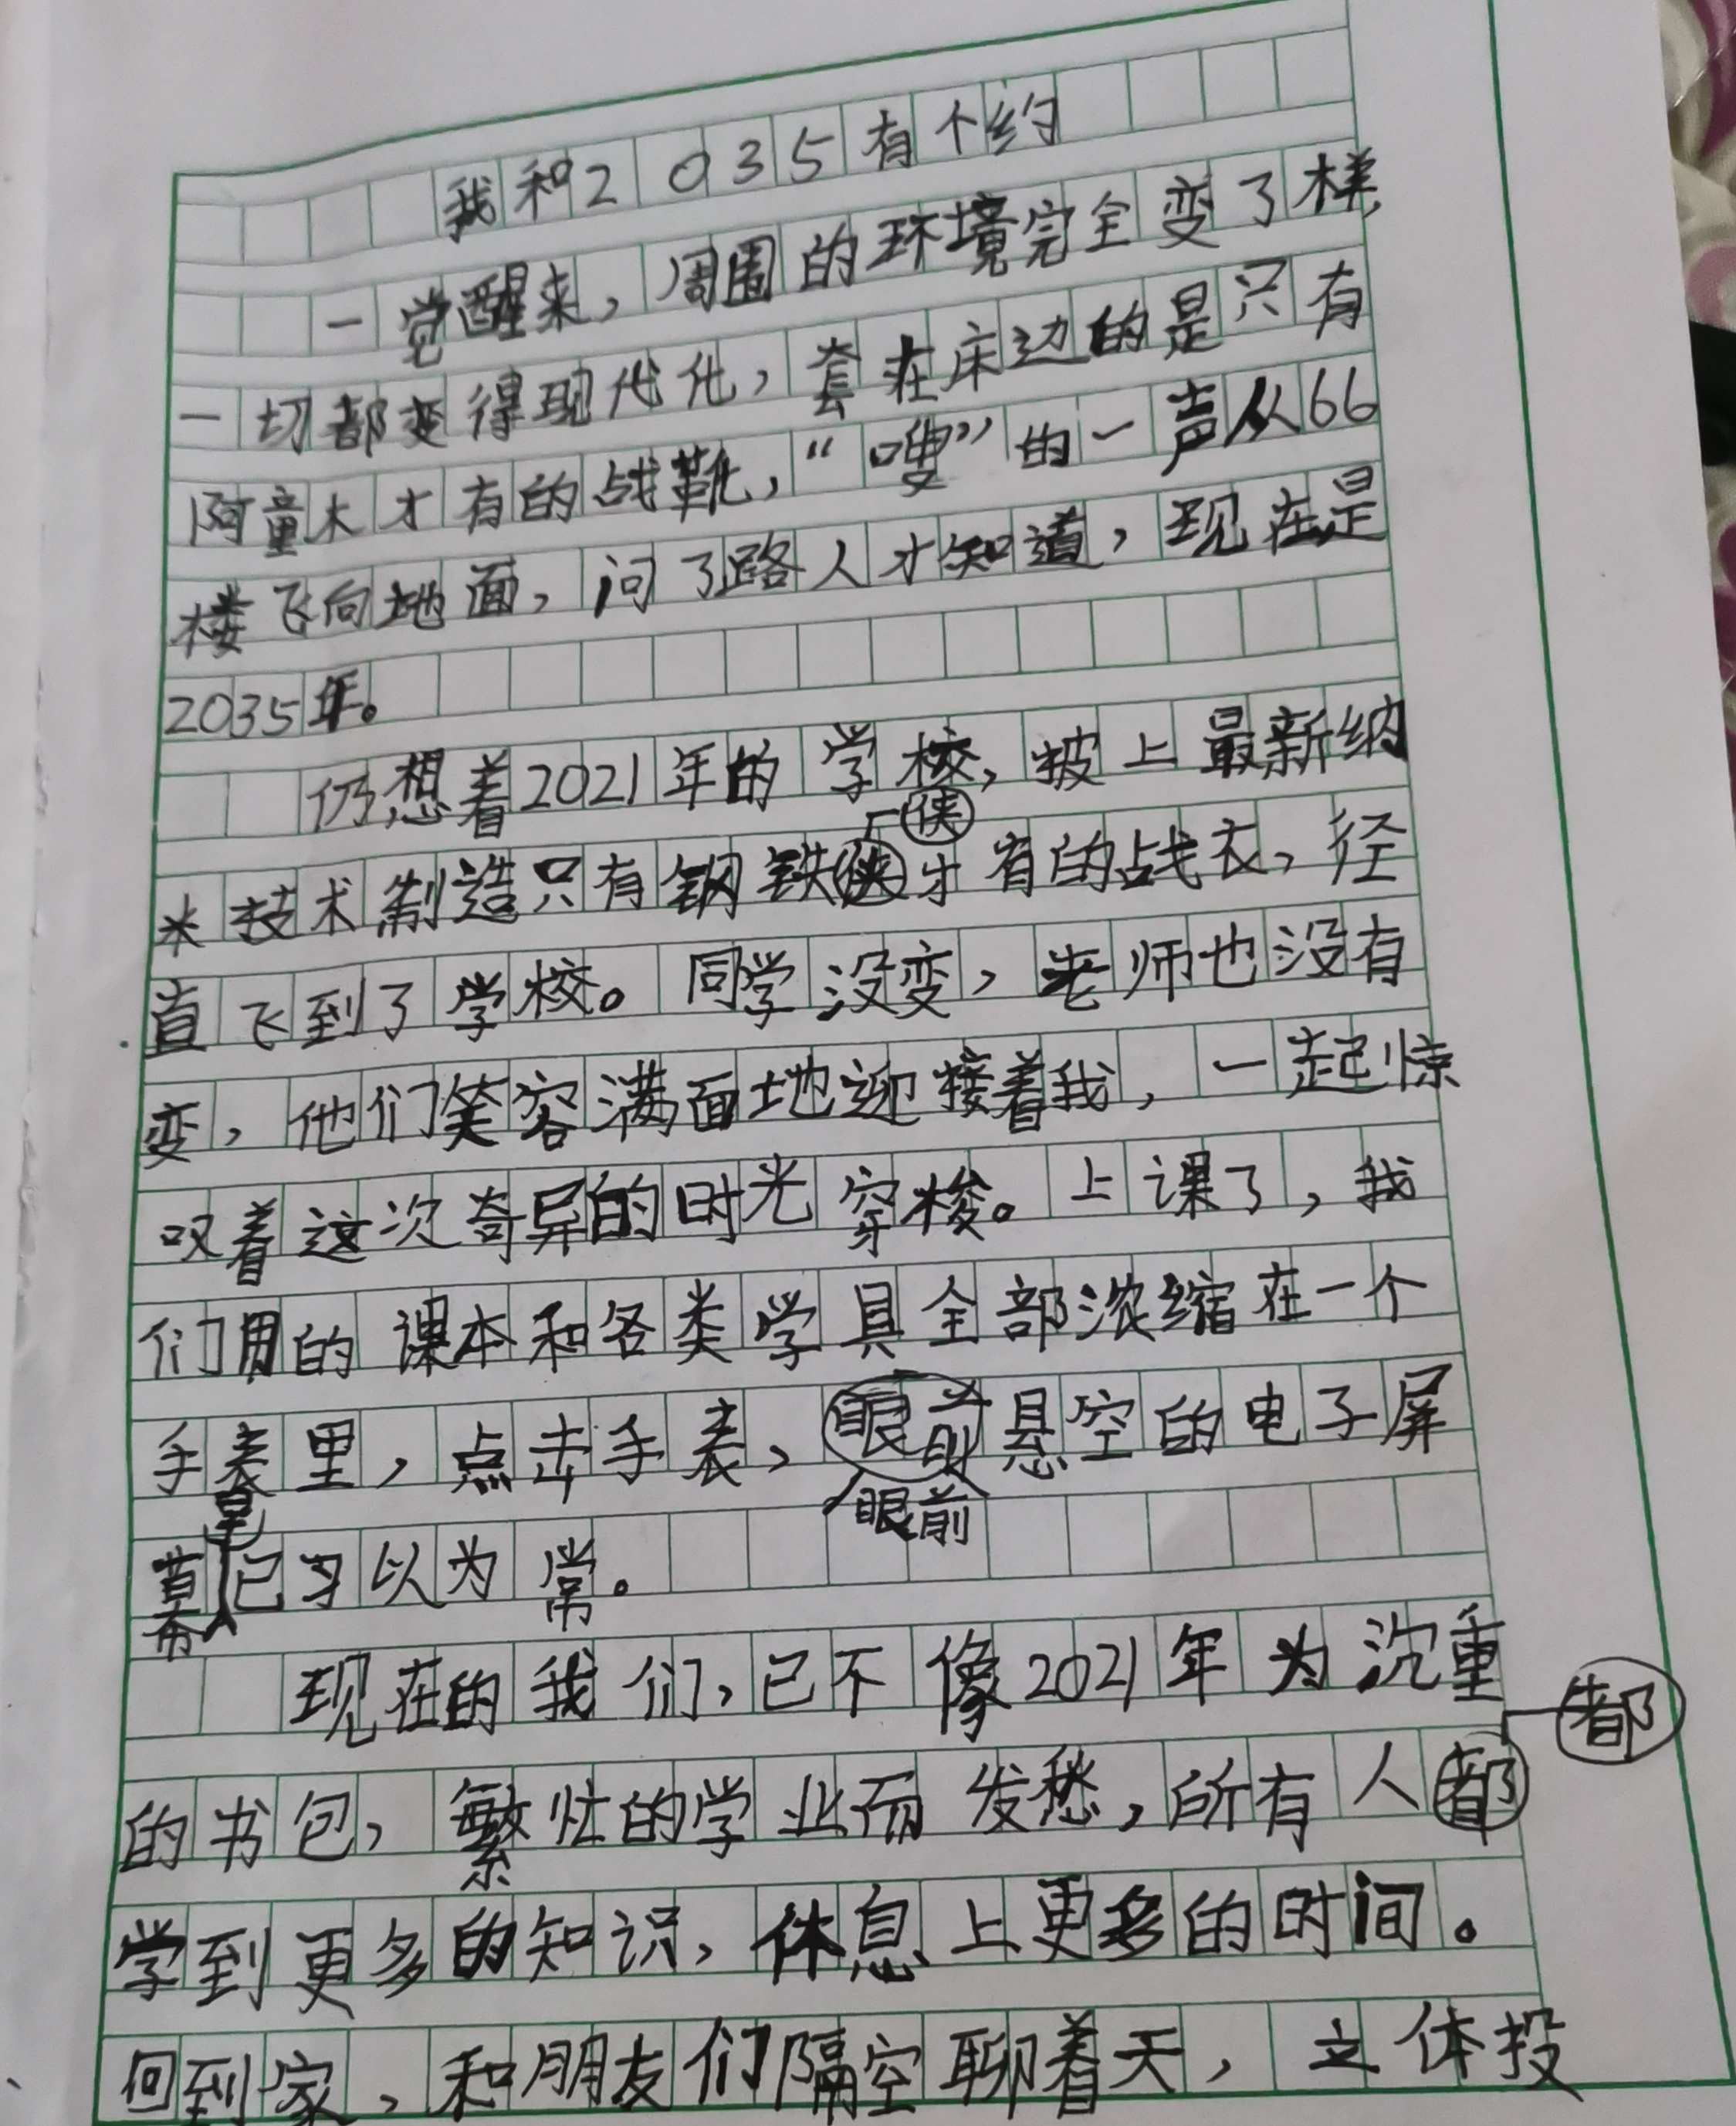 我和2035有个约
一觉醒来，周围的环境完全变了样，
一切都变得现代化，套在床边的是只有
阿童木才有的战靴，“嗖”的一声从66
楼飞向地面，问了路人才知道，现在是
2035年。
仍想着2021年的学校，披上最新纳
侠
米技术制造只有钢铁侠才有的战衣，径
直飞到了学校。同学没变，老师也没有
变，他们笑容满面地迎接着我，一起惊
叹着这次奇异的时光穿梭。上课了，我
们用的课本和各类学具全部浓缩在一个
手表里，点击手表，眼前悬空的电子屏
眼前
幕早已习以为常。
现在的我们，已不像2021年为沉重
都
的书包，繁忙的学业而发愁，所有人都
学到更多的知识，休息上更多的时间。
回到家，和朋友们隔空聊着天，立体投